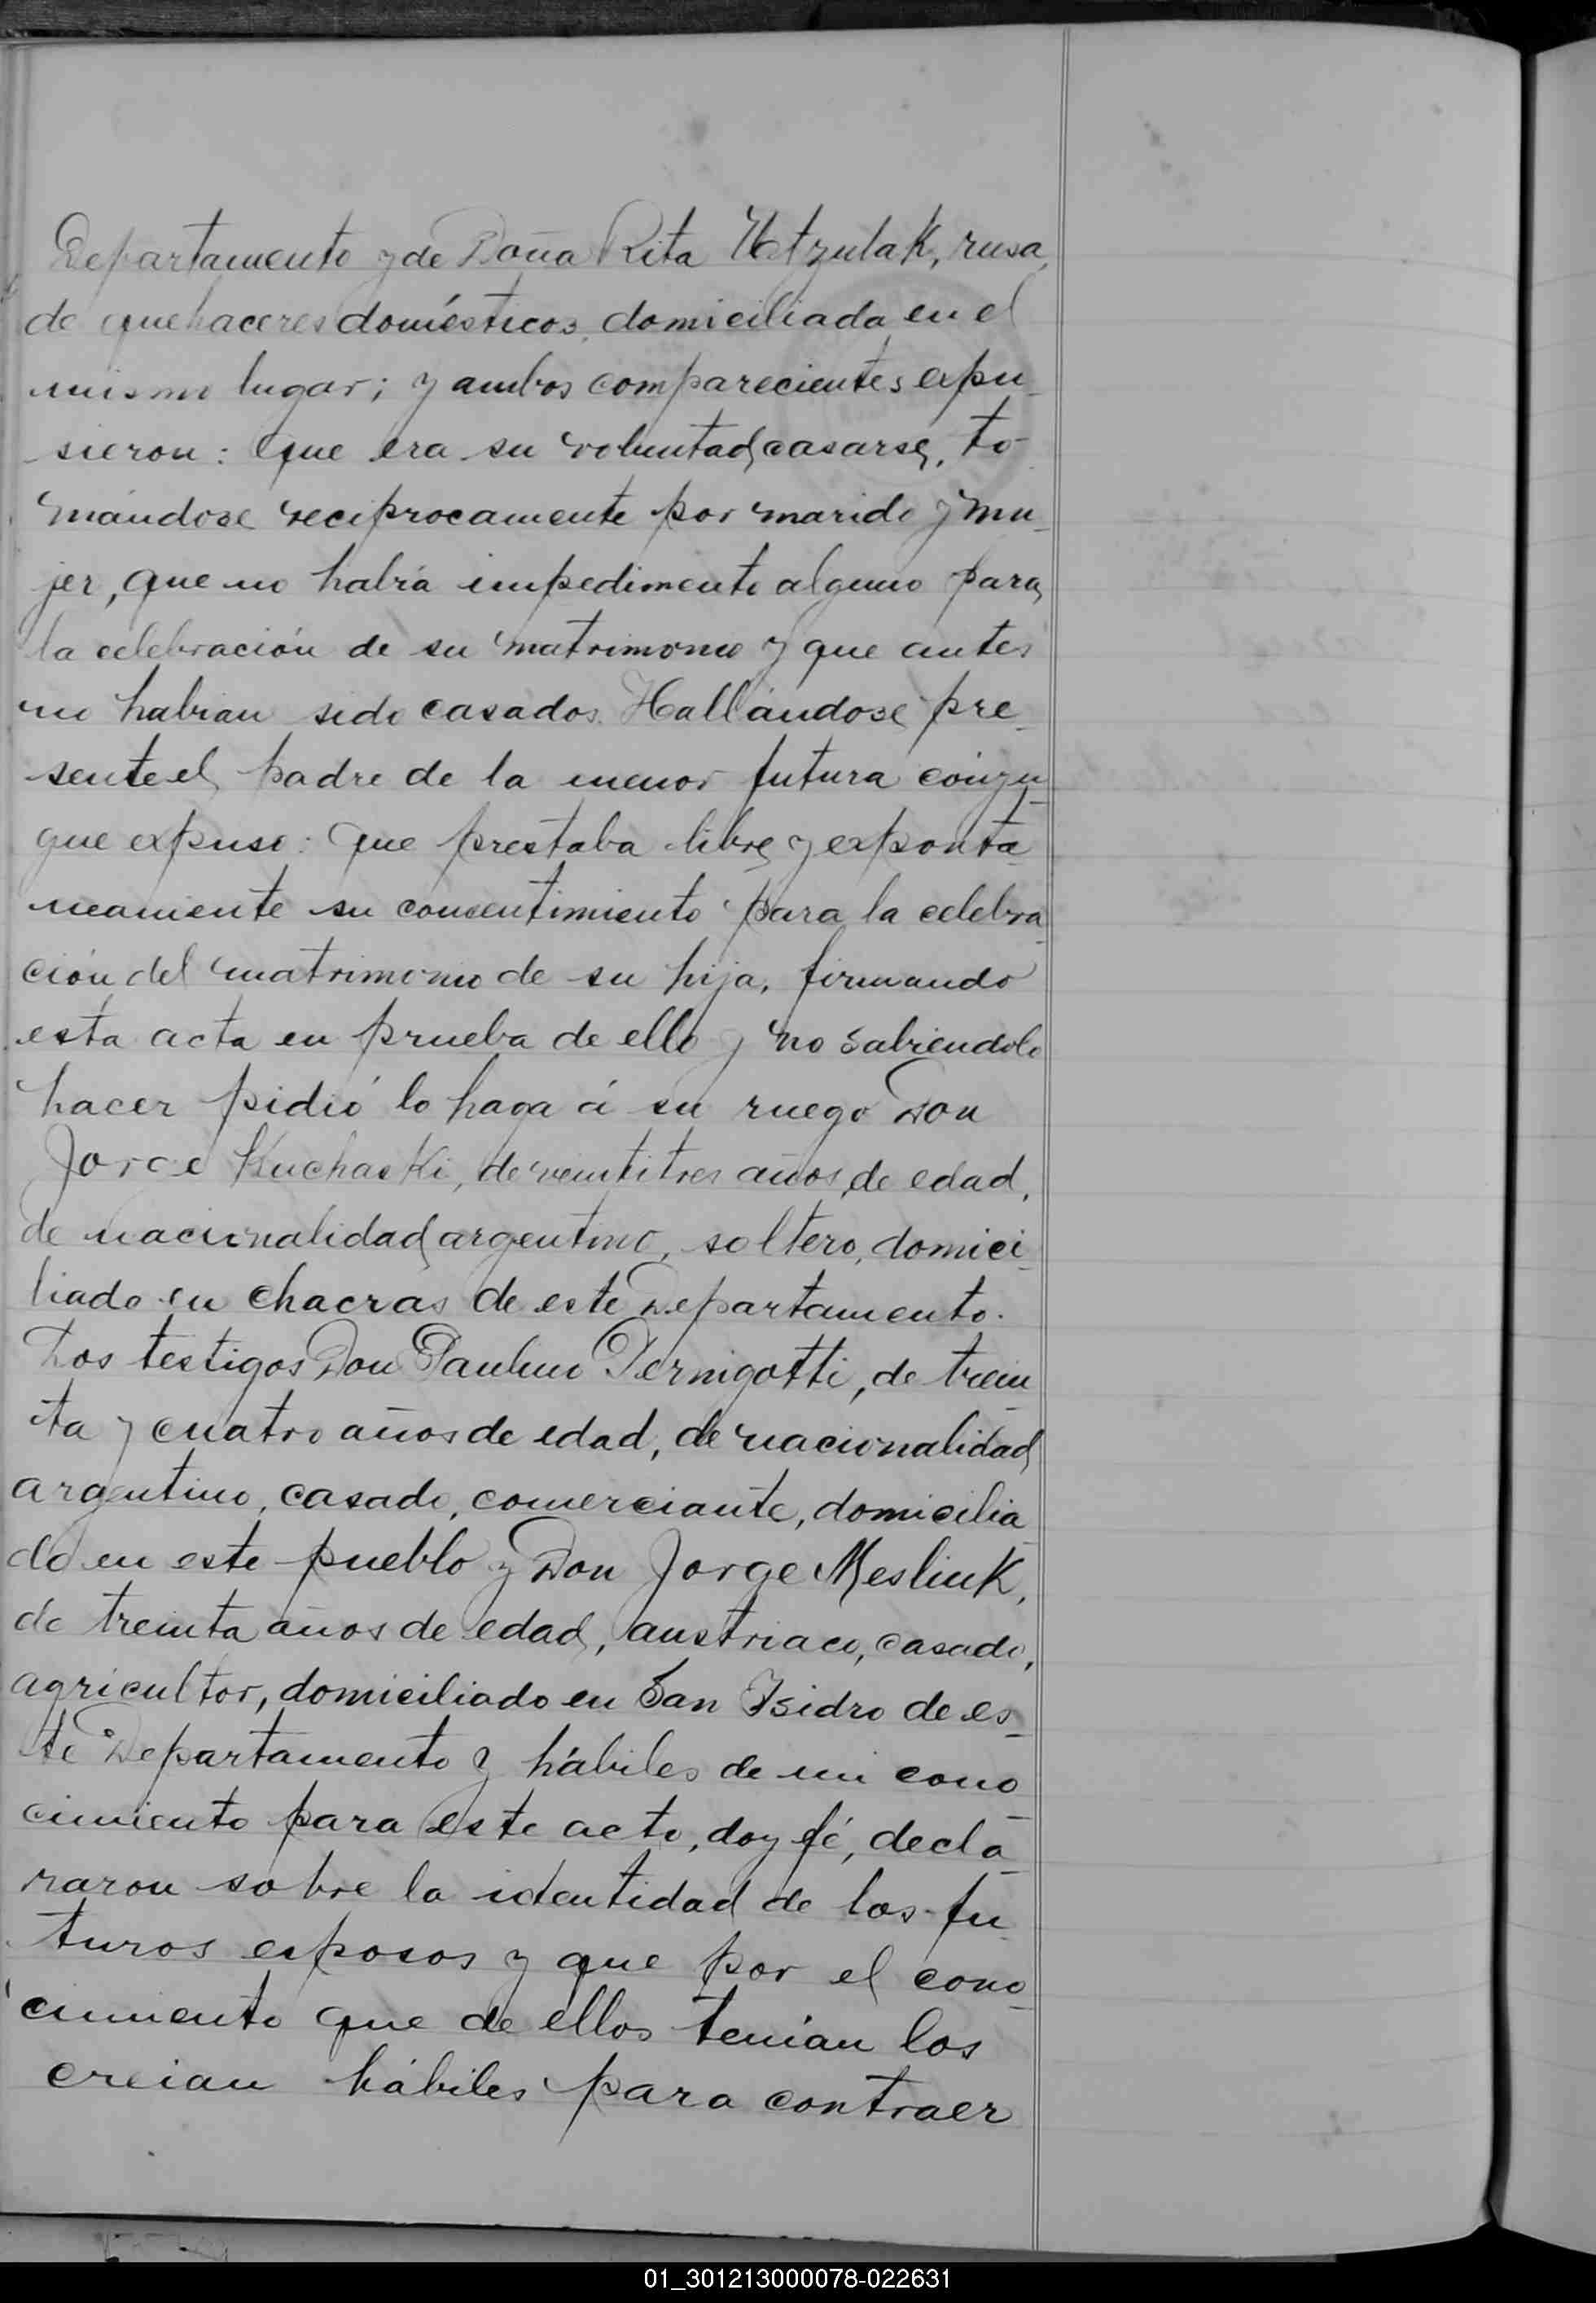 Departamento y de Doña Rita Hatzulak, rusa,
de quehaceres domésticos, domiciliada en el
mismo lugar; y ambos comparecientes expu-
sieron: Que era su voluntad casarse, to-
mándose reciprocamente por marido y mu-
jer, que no había impedimento alguno para
la celebración de su matrimonio y que antes
no habian sido casados. Hallándose pre-
sente el padre de la menor futura cónyu-
gue expuso: Que prestaba libre y exponta-
neamente su consentimiento para la celebra-
ción del matrimonio de su hija, firmando
esta acta en prueba de ello y no sabiendolo
hacer pidió lo haga á su ruego Don
Jorge Kuchaski, de veintitres años de edad,
de nacionalidad argentino, soltero, domici-
liado en chacras de este Departamento.
Los testigos Don Paulino Pernigotti, de trein-
ta y cuatro años de edad, de nacionalidad
argentino, casado, comerciante, domicilia-
do en este pueblo y Don Jorge Mesliuk,
de treinta años de edad, austriaco, casado,
agricultor, domiciliado en San Isidro de es-
te Departamento y hábiles de mi cono-
cimiento para este acto, doy fé, decla-
raron sobre la identidad de los fu-
turos esposos y que por el cono-
cimiento que de ellos tenían los
creian hábiles para contraer
01_301213000078-022631